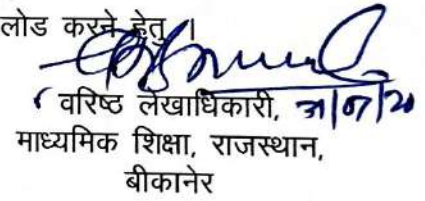 लोड करने हेतु ।
वरिष्ठ लेखाधिकारी, 31/07/20
माध्यमिक शिक्षा, राजस्थान,
बीकानेर